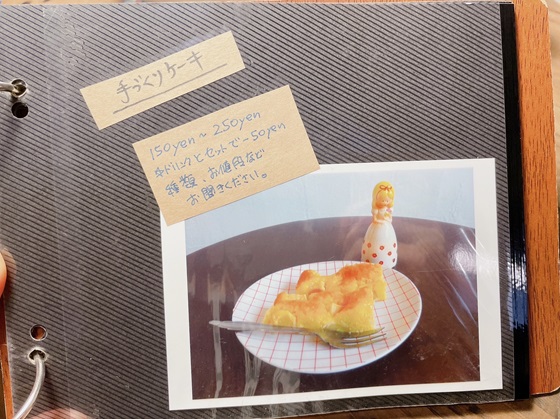 手づくりケーキ
150yen~250yen
*ドリンクとセットで-50yen
種類、お値段など
お聞きください。